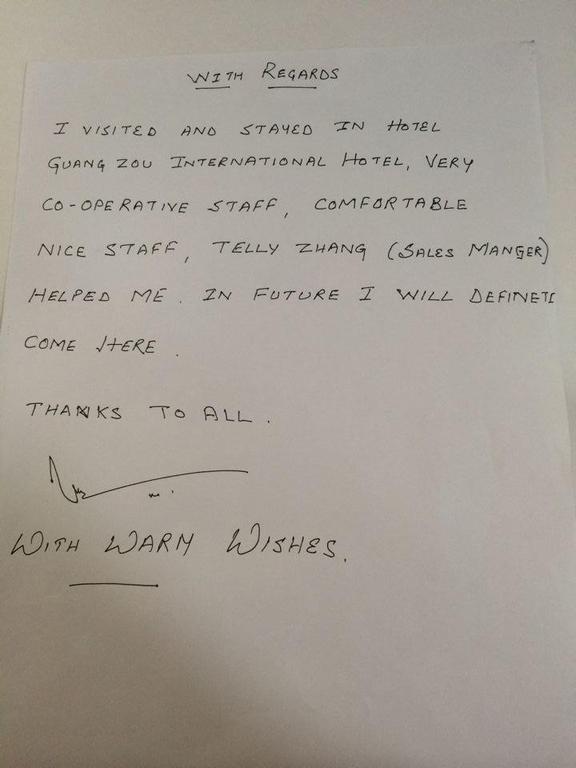 WITH REGARDS
I VISITED AND STAYED IN HOTEL
GUANG ZOU INTERNATIONAL HOTEL, VERY
CO-OPERATIVE STAFF, COMFORTABLE
NICE STAFF, TELLY ZHANG (SALES MANGER)
HELPED ME. IN FUTURE I WILL DEFINETE
COME HERE.
THANKS TO ALL.
WITH WARM WISHES.